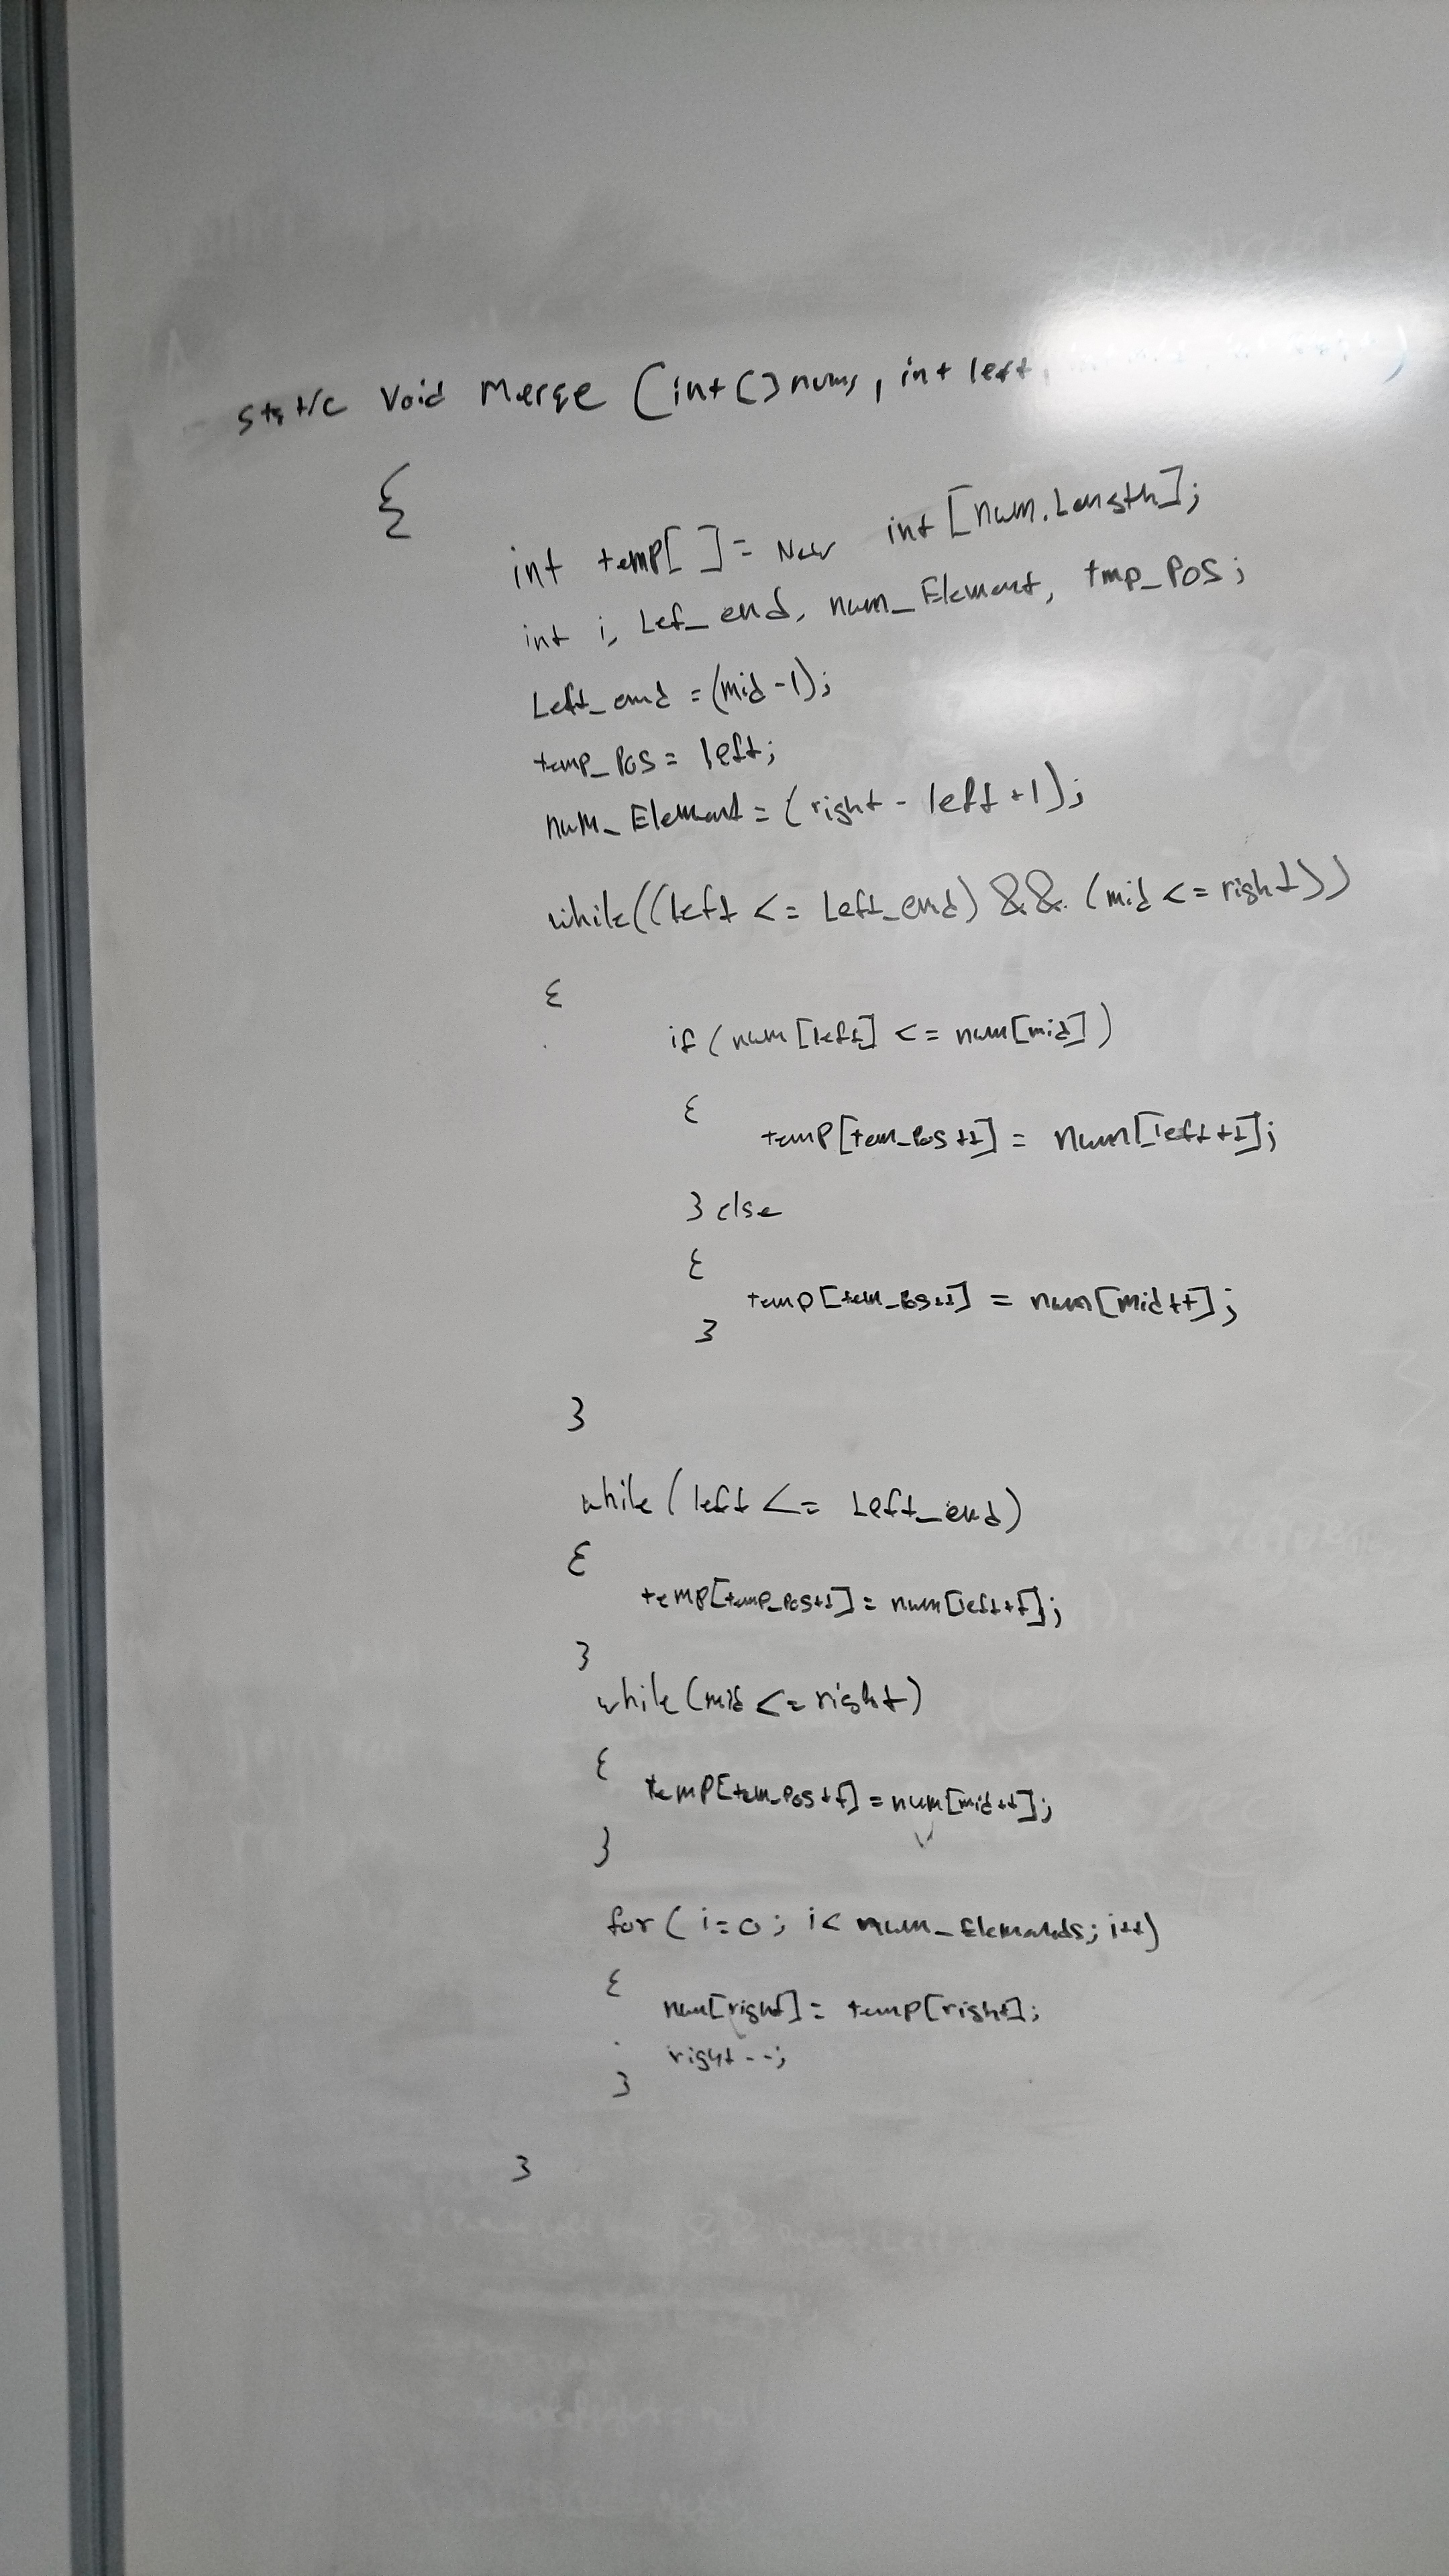 static void Merge (int[] nums, int left,
{
int temp[ ] = New int [num.Length];
int i, Lef_end, num_Element, tmp_Pos;
Left_end = (mid -1);
temp_Pos = left;
num_Element = (right - left +1);
while((left <= Left_end) && (mid <= right))
{
if (num [left] <= num[mid])
{
temp[tem_Pos++] = num[left++];
} else
{
temp[tem_Pos++] = num[mid++];
}
}
while (left <= Left_end)
{
temp[temp_Pos++] = num[left++];
}
while (mid <= right)
{
temp[tem_Pos++] = num[mid++];
}
for ( i=0; i< num_Elements; i++)
{
num[right] = temp[right];
right--;
}
}